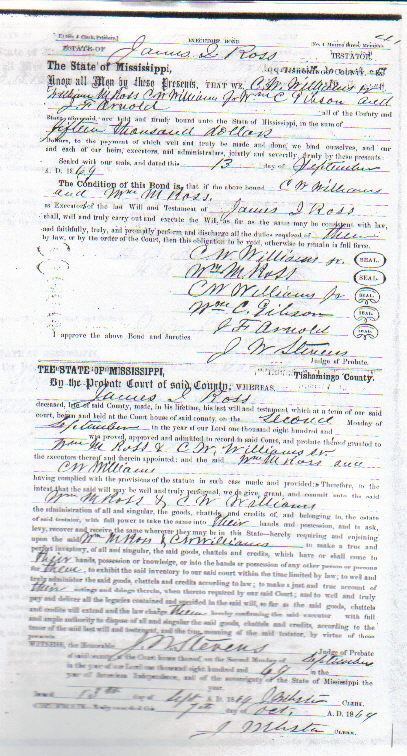 EXECUTORS BOND
ESTATE OF James I Ross TESTATOR.
The State of Mississippi,
Know all Men by these Presents, THAT WE C. W. Williams
William M Ross C W Williams Jr Wm C Gibson and
J F Arnold all of the County and
State aforesaid, are held and firmly bound unto the State of Mississippi, in the sum of
fifteen thousand dollars
Dollars, to the payment of which well and truly be made and done, we bind ourselves, and our
and each of our heirs, executors, and administrators, jointly and severally, firmly by these presents:
Sealed with our seals, and dated this 13 day of September
A. D. 1869
The Condition of this Bond is, that if the above bound C W Williams
and Wm M Ross.
as Executors of the last Will and Testament of James I Ross
shall, well and truly carry out and execute the Will, as far as the same may be consistent with law,
and faithfully, truly, and promptly perform and discharge all the duties required of them
by law, or by the order of the Court, then this obligation to be void, otherwise to remain in full force.
C W Williams sr. SEAL
Wm M Ross SEAL
C W Williams Jr SEAL
Wm C. Gibson SEAL
J F Arnold SEAL
I approve the above Bond and Sureties. J W Stevens
Judge of Probate.
THE STATE OF MISSISSIPPI, Tishomingo County.
By the Probate Court of said County; WHEREAS,
James I Ross
deceased, late of said County, made, in his lifetime, his last will and testament, which at a term of our said
court, begun and held at the Court house of said county, on the Second Monday of
September in the year of our Lord one thousand eight hundred and
was proved, approved and admitted to record in said Court, and probate thereof granted to
Wm M Ross & C. W. Williams sr
the executors therein and thereto appointed: and the said Wm M Ross and
C W Williams
having complied with the provisions of the statute in such case made and provided: Therefore, to the
intent that the said will may be well and truly performed, we do give, grant, and commit unto the said
Wm M Ross & C. W. Williams
the administration of all and singular, the goods, chattels and credits of, and belonging to, the estate
of said testator, with full power to take the same into their hands and possession, and to ask,
levy, recover and receive, the same wherever they may be in this State—hereby requiring and enjoining
upon the said Wm M Ross & C W Williams to make a true and
perfect inventory, of all and singular, the goods, chattels and credits, which have or shall come to
their hands, possession or knowledge, or into the hands or possession of any other person or persons
for them, to exhibit the said inventory to our said court within the time limited by law; to well and
truly administer the said goods, chattels and credits according to law; to make a just and true account of
their actings and doings therein, when thereto required by our said Court; and to well and truly
pay and deliver all the legacies contained and specified in the said will, so far as the said goods, chattels
and credits will extend and the law charge them hereby confirming the said executor with full
and ample authority to dispose of all and singular the said goods, chattels and credits, according to the
tenor of the said last will and testament, and the true meaning of the said testator, by virtue of these
presents.
WITNESS, the Honorable J. W. Stevens Judge of Probate
of said county, at the Court house thereof, on the Second Monday of September
in the year of our Lord one thousand eight hundred and 69 in the
year of American Independence, and of the sovereignty of the State of Mississippi the
year.
Issued 13th day of Sept A. D. 1869
CLERK.
day of Oct A. D. 1869
CLERK.